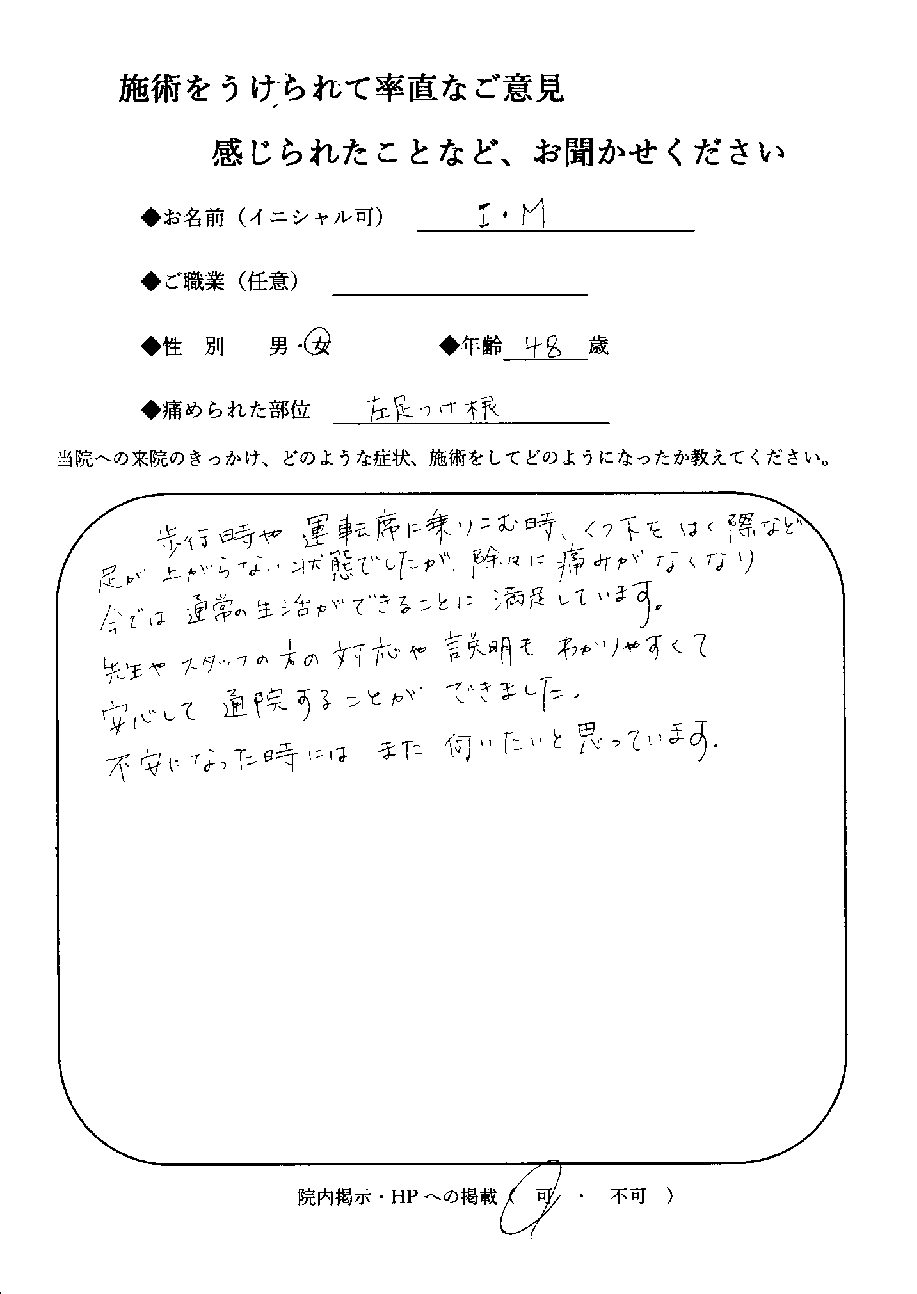 施術をうけられて率直なご意見
感じられたことなど、お聞かせください
◆お名前（イニシャル可） I・M
◆ご職業（任意）
◆性 別 男・女 ◆年齢 48 歳
◆痛められた部位 左足つけ根
当院への来院のきっかけ、どのような症状、施術をしてどのようになったか教えてください。
歩行時や 運転席に乗りこむ時、くつ下を はく際など
足が 上がらない状態でしたが、除々に 痛みがなくなり
今では 通常の生活ができることに 満足しています。
先生やスタッフの方の 対応や 説明も わかりやすくて
安心して 通院することが できました。
不安になった時には また 伺いたいと思っています.
院内掲示・HPへの掲載（ 可 ・ 不可 ）